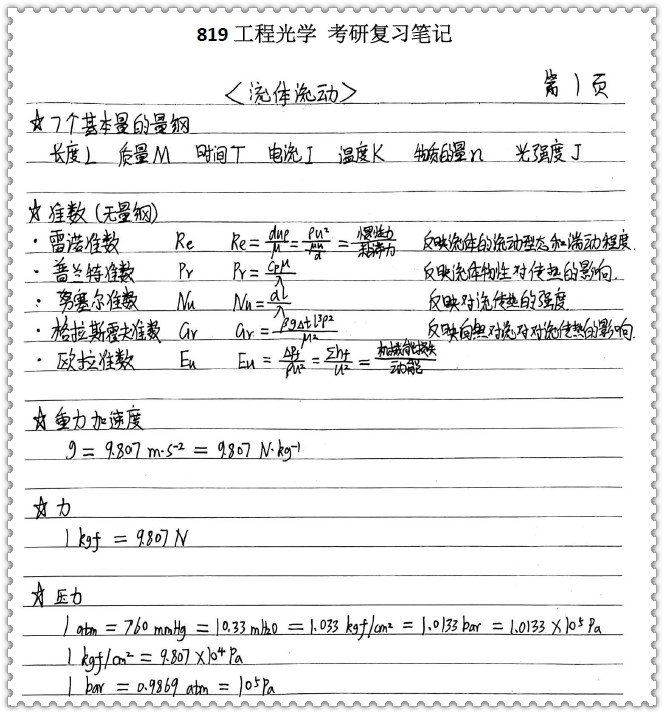 819 工程光学 考研复习笔记
<流体流动> 第 1 页
☆ 7个基本量的量纲
长度L 质量M 时间T 电流I 温度K 物质的量n 光强度J
☆ 准数 (无量纲)
· 雷诺准数 Re Re = duρ/μ = ρu²/(μu/d) = 惯性力/粘滞力 反映流体的流动型态和湍动程度.
· 普兰特准数 Pr Pr = Cpμ/λ 反映流体物性对传热的影响.
· 努塞尔准数 Nu Nu = αl/λ 反映对流传热的强度
· 格拉斯霍夫准数 Gr Gr = βgΔtl³ρ²/μ² 反映自然对流对对流传热的影响.
· 欧拉准数 Eu Eu = ΔPf/ρu² = Σhf/u² = 机械能损失/动能
☆ 重力加速度
g = 9.807 m·s⁻² = 9.807 N·kg⁻¹
☆ 力
1 kgf = 9.807 N
☆ 压力
1 atm = 760 mmHg = 10.33 mH₂O = 1.033 kgf/cm² = 1.0133 bar = 1.0133 ×10⁵ Pa
1 kgf/cm² = 9.807 ×10⁴ Pa
1 bar = 0.9869 atm = 10⁵ Pa